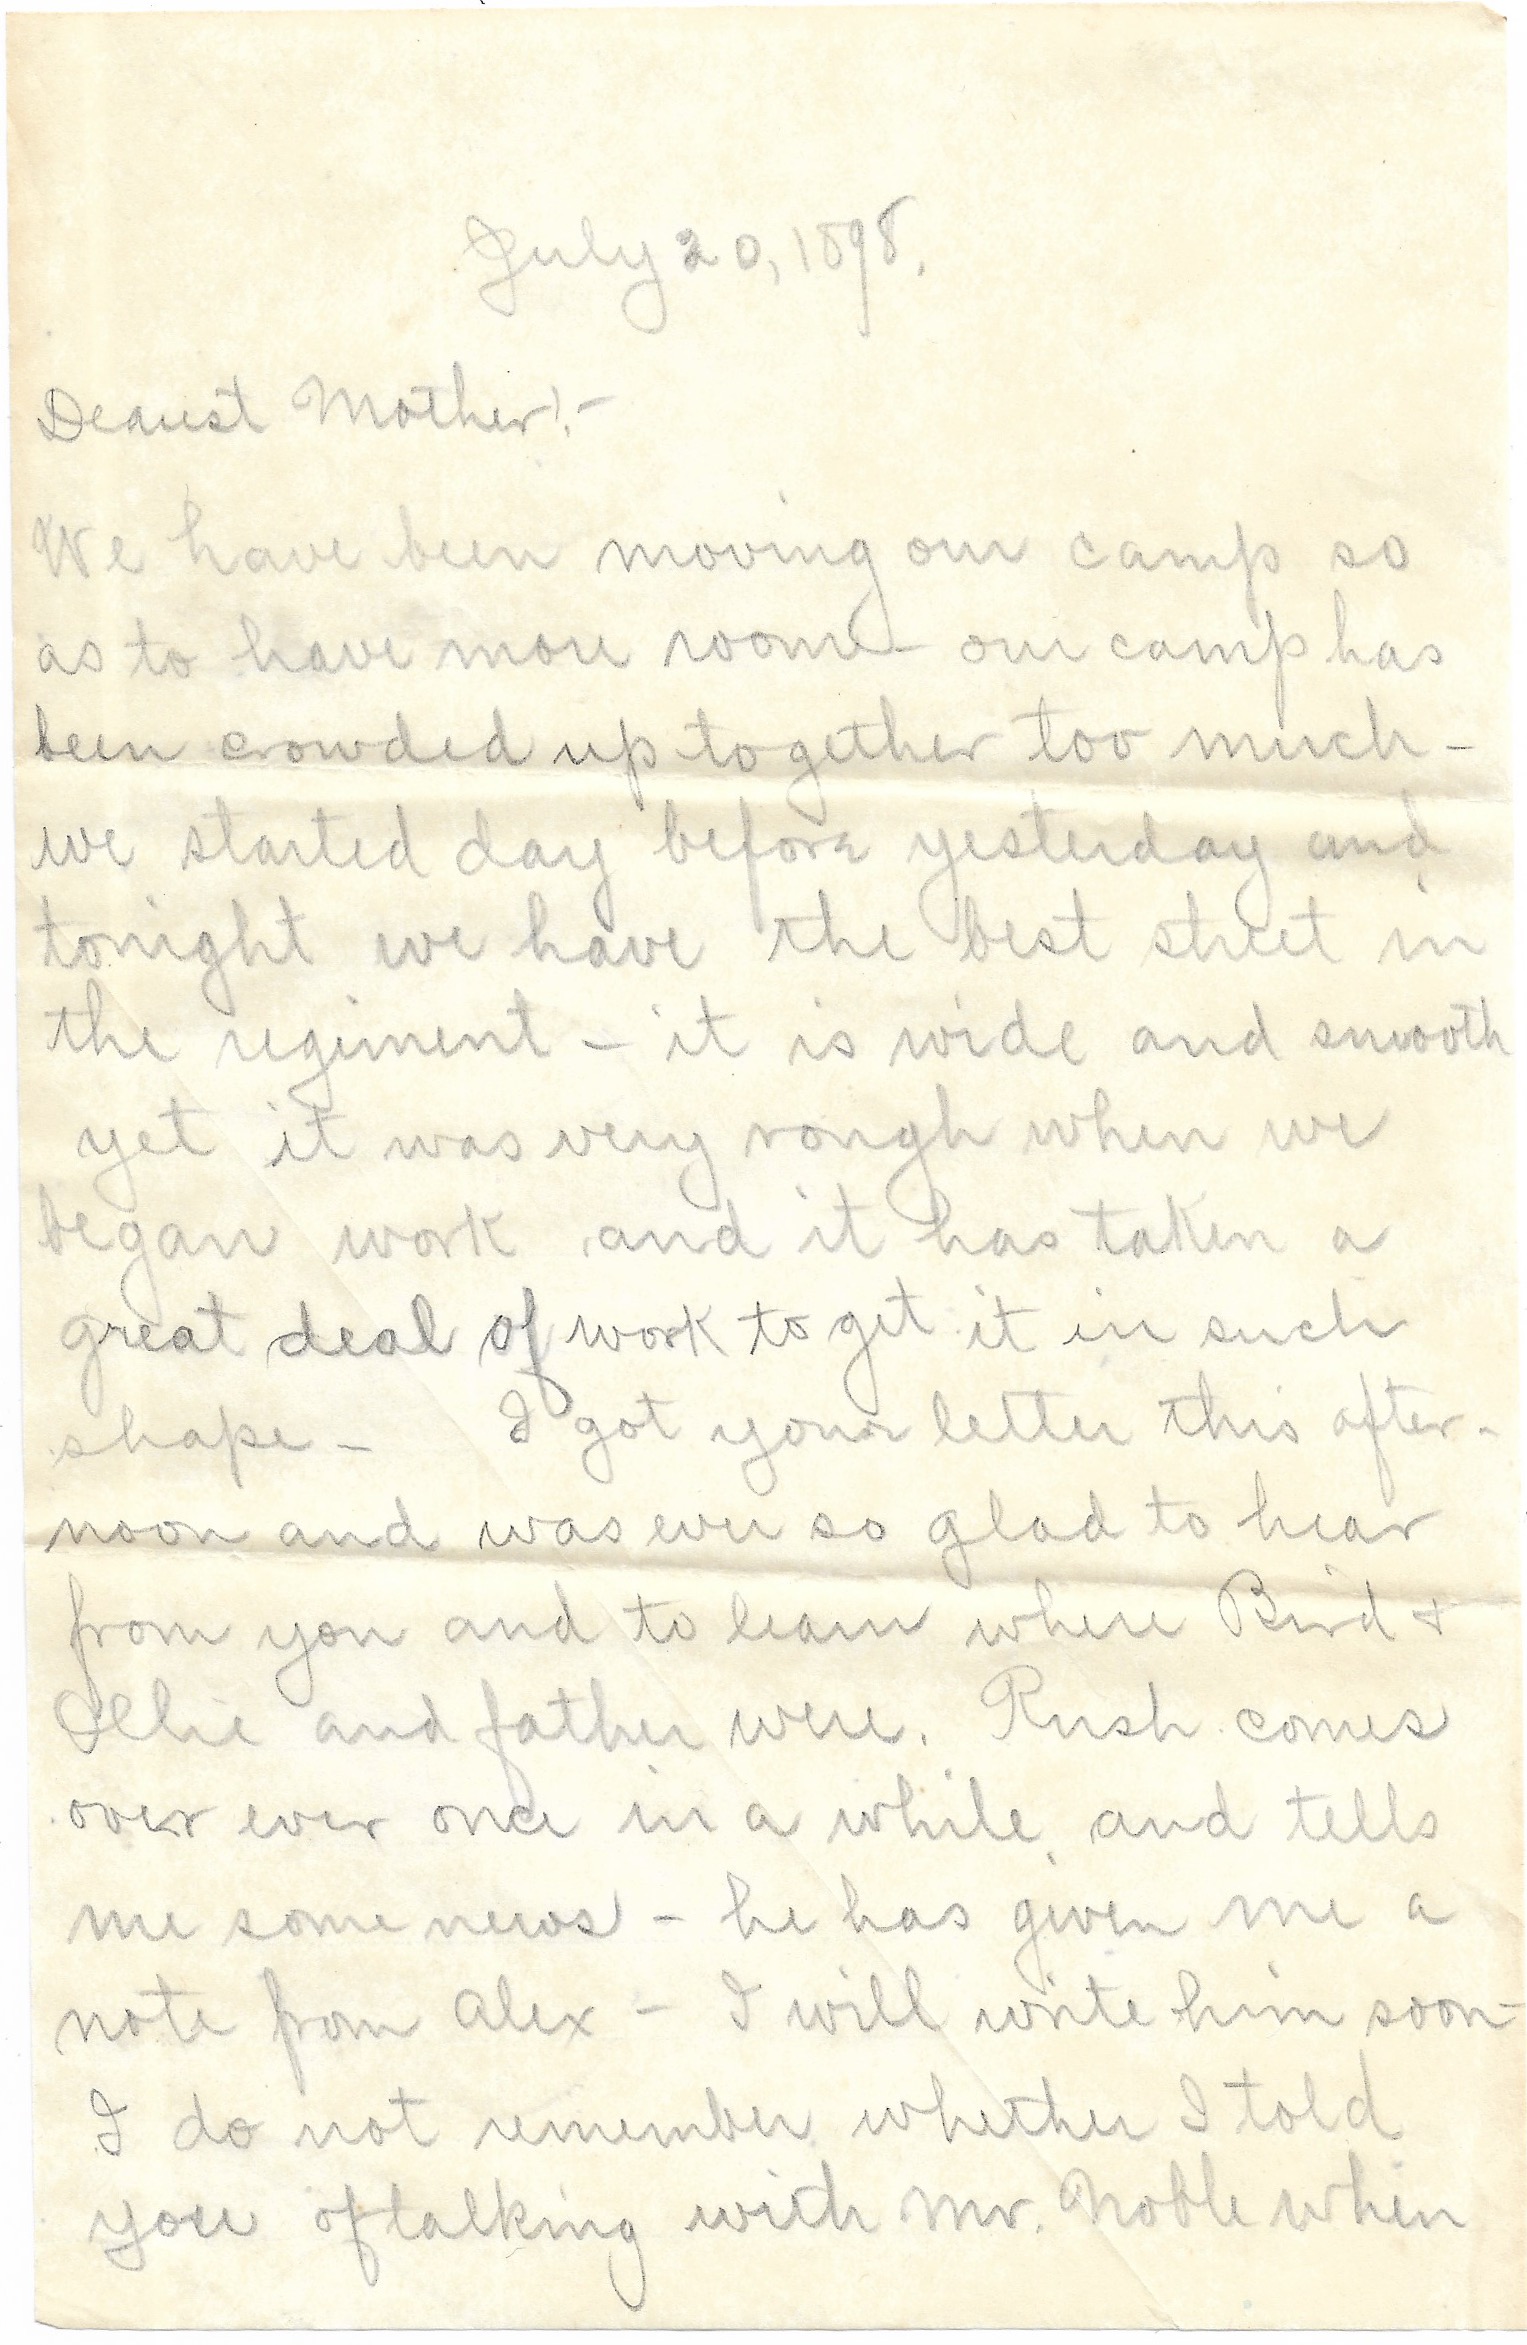 July 20, 1898.
Dearest Mother!-
We have been moving our camp so
as to have more room - our camp has
been crowded up together too much -
we started day before yesterday and
tonight we have the best street in
the regiment - it is wide and smooth
yet it was very rough when we
began work and it has taken a
great deal of work to get it in such
shape - I got your letter this after-
noon and was ever so glad to hear
from you and to learn where Bird &
Ollie and father were. Rush comes
over ever once in a while and tells
me some news - he has given me a
note from Alex - I will write him soon -
I do not remember whether I told
you of talking with Mr. Noble when